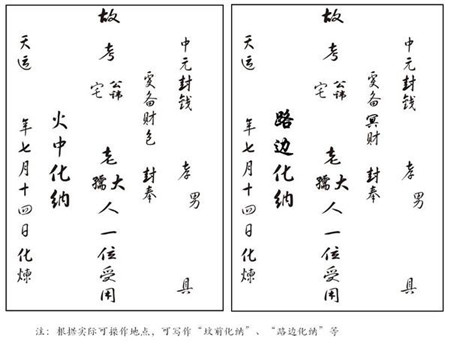 中元封钱 孝男 具
爰备财包 封奉
故考 公讳 宅 老大孺人一位受用
火中化纳
天运 年七月十四日化炼
中元封钱 孝男 具
爰备冥财 封奉
故考 公讳 宅 老大孺人一位受用
路边化纳
天运 年七月十四日化炼
注：根据实际可操作地点，可写作“坟前化纳”、“路边化纳”等